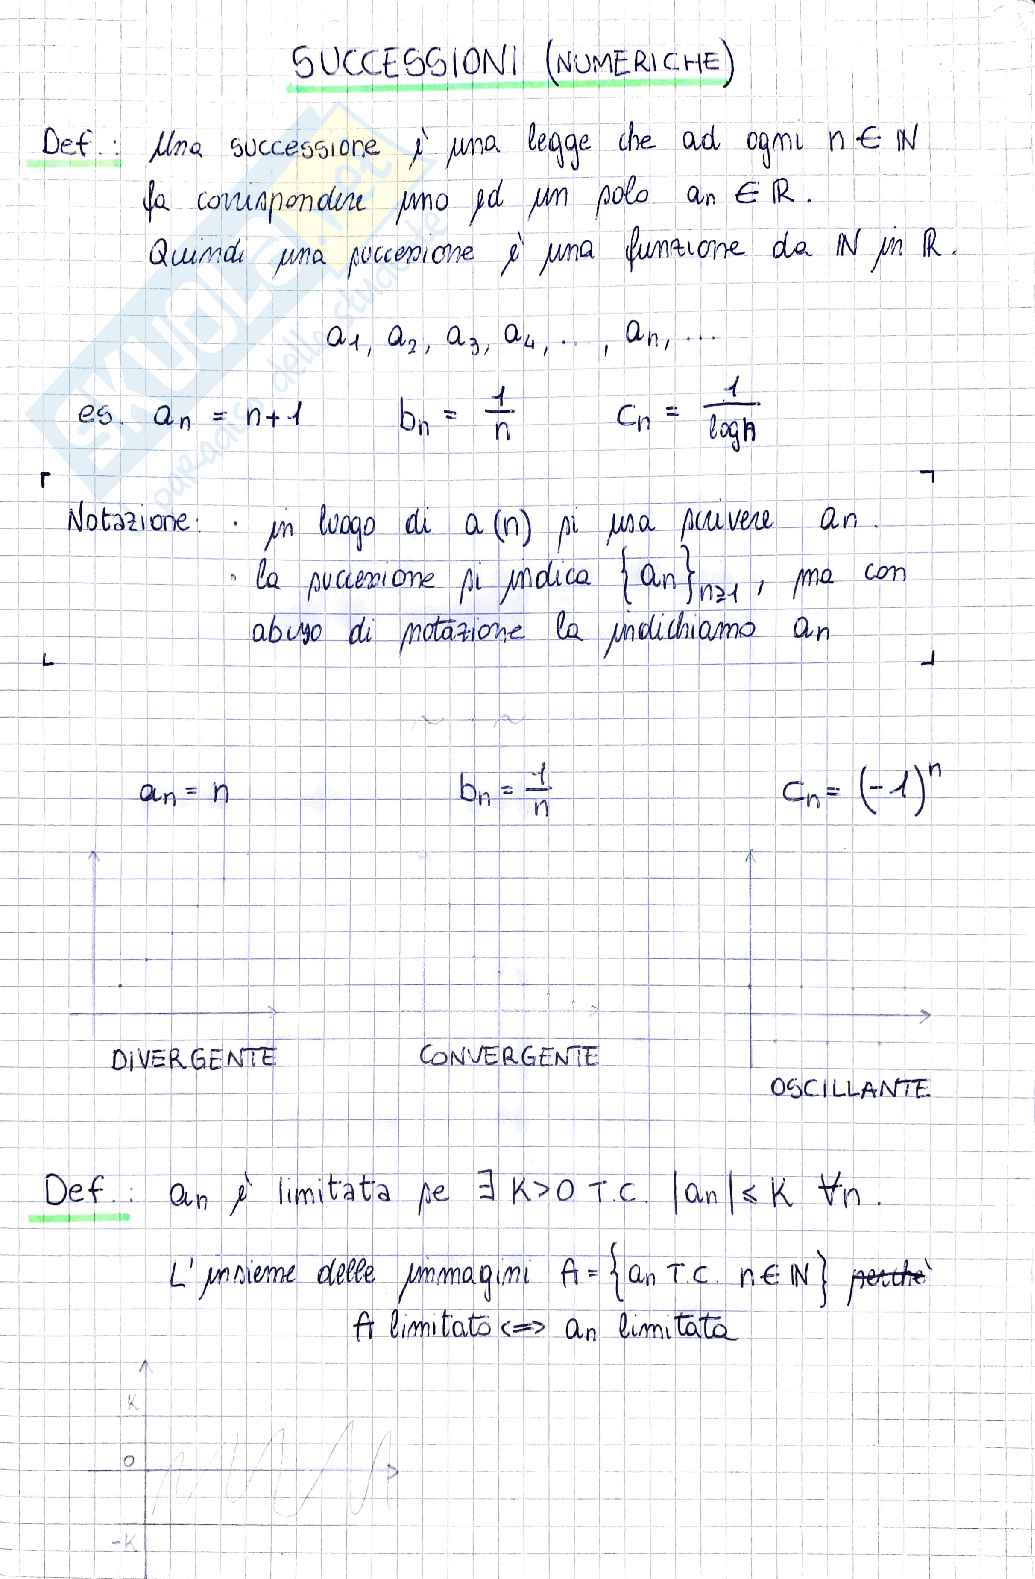 SUCCESSIONI (NUMERICHE)
Def.: Una successione è una legge che ad ogni n ∈ ℕ
fa corrispondere uno ed un solo an ∈ ℝ.
Quindi una successione è una funzione da ℕ in ℝ.
a1, a2, a3, a4, ..., an, ...
es. an = n+1 bn = 1/n cn = 1/logn
Notazione: · in luogo di a(n) si usa scrivere an.
· la successione si indica {an}n≥1, ma con
abuso di notazione la indichiamo an
an = n bn = 1/n cn = (-1)^n
DIVERGENTE CONVERGENTE
OSCILLANTE
Def.: an è limitata se ∃ K>0 T.C. |an| ≤ K ∀n.
L'insieme delle immagini A = {an T.C. n ∈ ℕ} perchè
A limitato <=> an limitata
K
0
-K
SKUOLA.net
paradiso dello studente